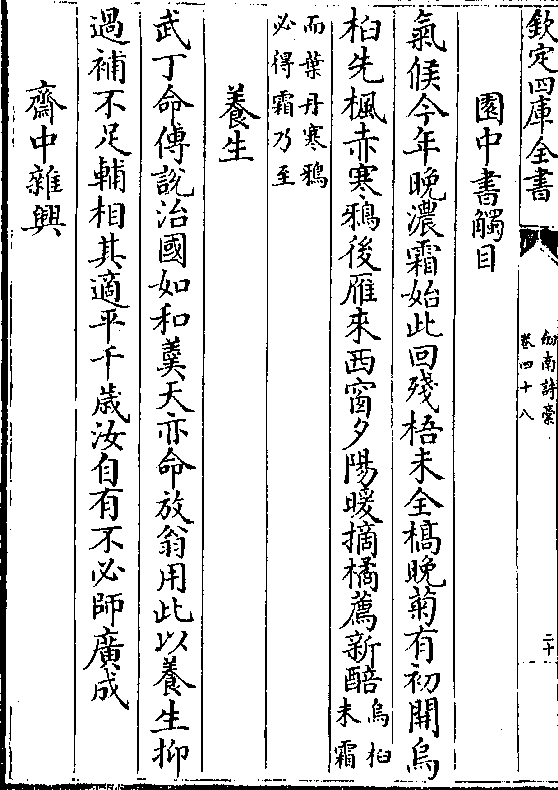 欽定四庫全書
劍南詩稾
卷四十八
二十
園中書觸目
氣候今年晚濃霜始此回殘梧未全槁晚菊有初開烏
桕先楓赤寒鴉後雁來西窗夕陽暖摘橘薦新醅
烏桕
未霜
而葉丹寒鴉
必得霜乃至
養生
武丁命傅說治國如和羹天亦命放翁用此以養生抑
過補不足輔相其適平千歲汝自有不必師廣成
齋中雜興